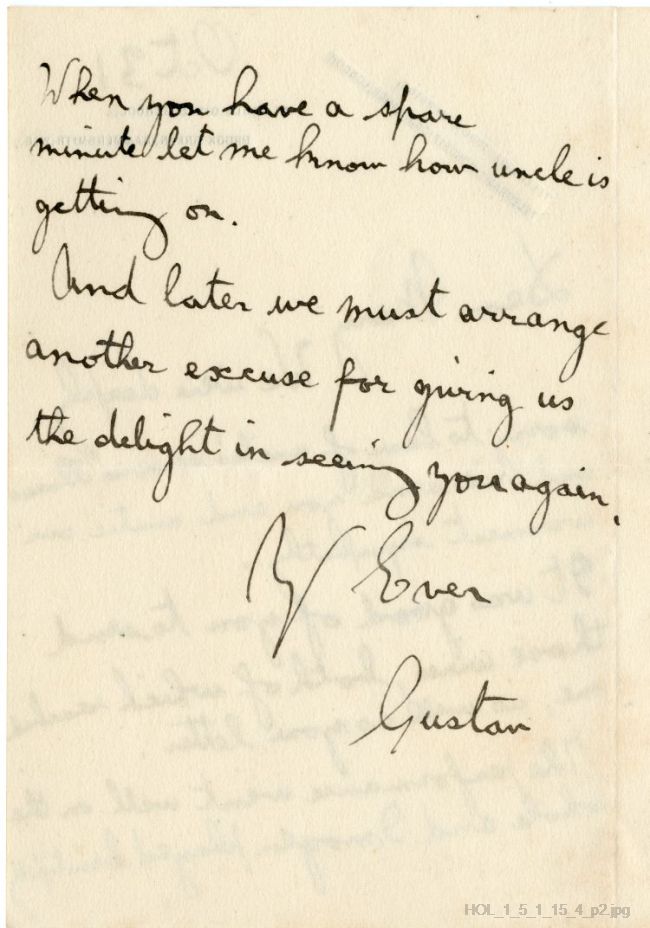 When you have a spare
minute let me know how uncle is
getting on.
And later we must arrange
another excuse for giving us
the delight in seeing you again.
Y Ever
Gustav
HOL_1_5_1_15_4_p2.jpg